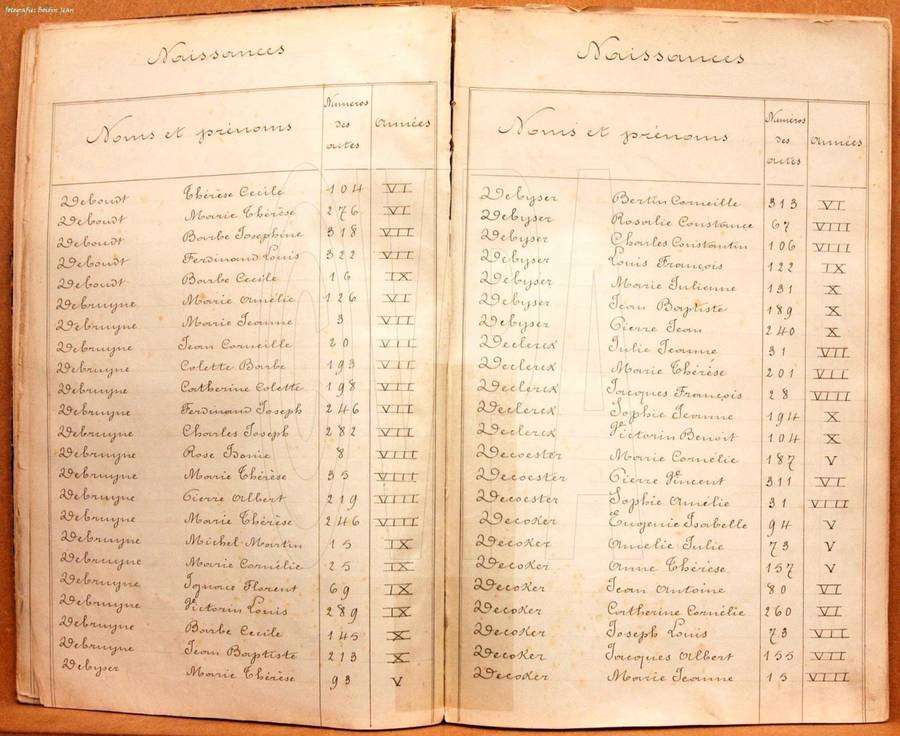 fotografie: Boidin Jean
Naissances
Noms et prénoms Numéros des actes Années
Deboudt Thérèse Cecile 104 VI
Deboudt Marie Thérèse 276 VI
Deboudt Barbe Josephine 318 VII
Deboudt Ferdinand Louis 322 VII
Deboudt Barbe Cecile 16 IX
Debruyne Marie Amélie 126 VI
Debruyne Marie Jeanne 3 VII
Debruyne Jean Corneille 20 VII
Debruyne Colette Barbe 193 VII
Debruyne Catherine Colette 198 VII
Debruyne Ferdinand Joseph 246 VII
Debruyne Charles Joseph 282 VII
Debruyne Rose 8 VIII
Debruyne Marie Thérèse 35 VIII
Debruyne Pierre Albert 219 VIII
Debruyne Marie Thérèse 246 VIII
Debruyne Michel Martin 15 IX
Debruyne Marie Cornélie 25 IX
Debruyne Ignace Florent 69 IX
Debruyne Victorin Louis 289 IX
Debruyne Barbe Cecile 145 X
Debruyne Jean Baptiste 213 X
Debyser Marie Thérèse 93 V
Naissances
Noms et prénoms Numéros des actes Années
Debyser Bertin Corneille 313 VI
Debyser Rosalie Constance 67 VIII
Debyser Charles Constantin 106 VIII
Debyser Louis François 122 IX
Debyser Marie Julienne 131 X
Debyser Jean Baptiste 189 X
Debyser Pierre Jean 240 X
Declerck Julie Jeanne 31 VII
Declerck Marie Thérèse 201 VII
Declerck Jacques François 28 VIII
Declerck Sophie Jeanne 194 X
Declerck Victorin Benoit 104 X
Decoester Marie Cornélie 187 V
Decoester Pierre Vincent 311 VI
Decoester Sophie Amélie 31 VIII
Decoker Eugenie Isabelle 94 V
Decoker Amelie Julie 73 V
Decoker Anne Thérèse 157 V
Decoker Jean Antoine 80 VI
Decoker Catherine Cornélie 260 VI
Decoker Joseph Louis 73 VII
Decoker Jacques Albert 155 VII
Decoker Marie Jeanne 15 VIII